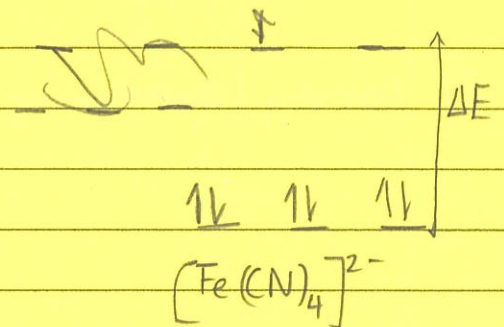 ΔE
[Fe(CN)₄]²⁻